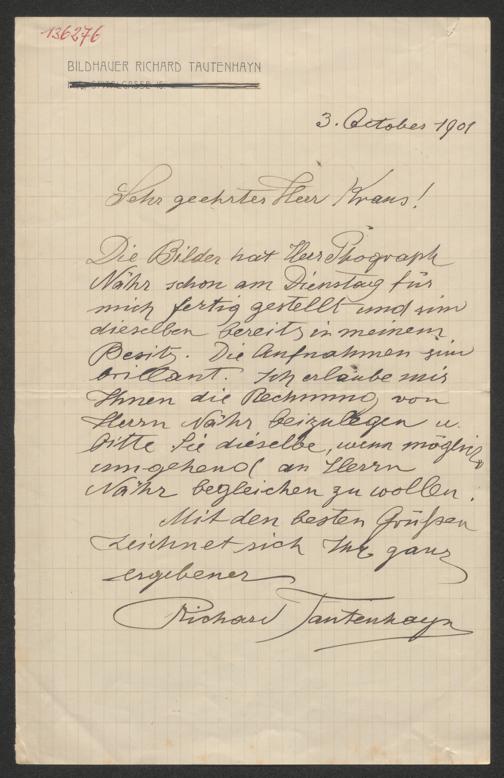 136276
BILDHAUER RICHARD TAUTENHAYN
SPITALGASSE
3. October 1901
Sehr geehrter Herr Kraus!
Die Bilder hat Herr Phograph
Nähr schon am Dienstag für
mich fertig gestellt und sin
dieselben bereits in meinem
Besitz. Die Aufnahmen sin
brillant. Ich erlaube mir
Ihnen die Rechnung von
Herrn Nähr beizulegen u.
bitte Sie dieselbe, wenn möglich
umgehend an Herrn
Nähr begleichen zu wollen.
Mit den besten Grüßen
zeichnet sich Ihr ganz
ergebener
Richard Tautenhayn